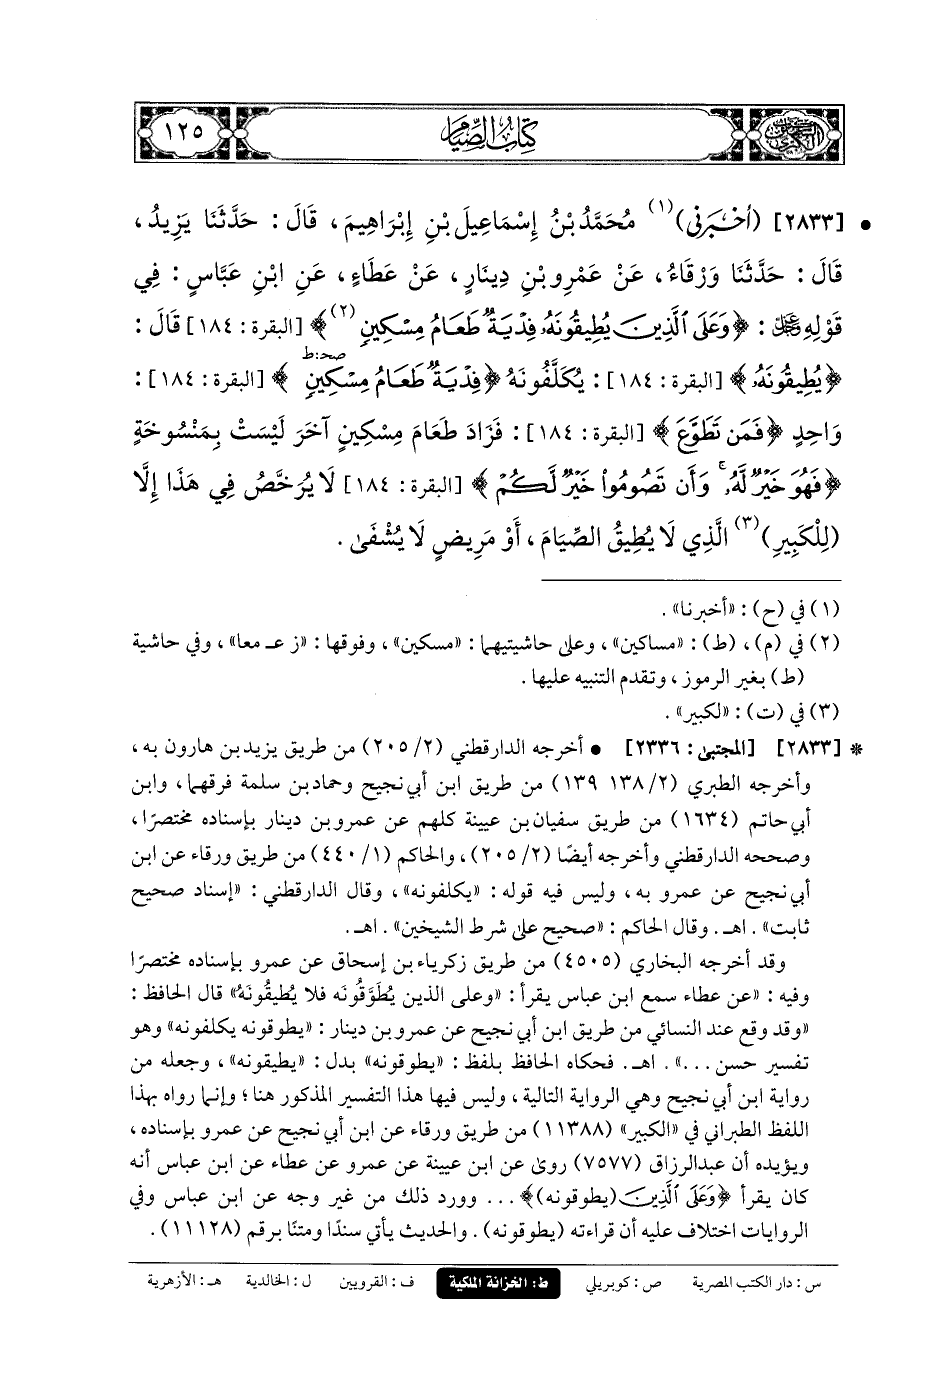 كتاب الصيام
١٢٥
• [٢٨٣٣] (أَخْبَرَنِي)(١) مُحَمَّدُ بْنُ إِسْمَاعِيلَ بْنِ إِبْرَاهِيمَ، قَالَ: حَدَّثَنَا يَزِيدُ،
قَالَ: حَدَّثَنَا وَرْقَاءُ، عَنْ عَمْرِو بْنِ دِينَارٍ، عَنْ عَطَاءٍ، عَنِ ابْنِ عَبَّاسٍ: فِي
قَوْلِهِ ﷻ: ﴿وَعَلَى ٱلَّذِينَ يُطِيقُونَهُۥ فِدْيَةٌ طَعَامُ مِسْكِينٍ(٢)﴾ [البقرة: ١٨٤] قَالَ:
صحـ: ط
﴿يُطِيقُونَهُ﴾ [البقرة: ١٨٤]: يُكَلَّفُونَهُ ﴿فِدْيَةٌ طَعَامُ مِسْكِينٍ﴾ [البقرة: ١٨٤]:
وَاحِدٍ ﴿فَمَن تَطَوَّعَ﴾ [البقرة: ١٨٤]: فَزَادَ طَعَامَ مِسْكِينٍ آخَرَ لَيْسَتْ بِمَنْسُوخَةٍ
﴿فَهُوَ خَيْرٌ لَّهُۥ ۚ وَأَن تَصُومُوا۟ خَيْرٌ لَّكُمْ﴾ [البقرة: ١٨٤] لَا يُرَخَّصُ فِي هَذَا إِلَّا
(لِلْكَبِيرِ)(٣) الَّذِي لَا يُطِيقُ الصِّيَامَ، أَوْ مَرِيضٍ لَا يُشْفَى.
(١) في (ح): «أخبرنا».
(٢) في (م)، (ط): «مساكين»، وعلى حاشيتيهما: «مسكين»، وفوقها: «ز عـ معا»، وفي حاشية
(ط) بغير الرموز، وتقدم التنبيه عليها.
(٣) في (ت): «لكبير».
* [٢٨٣٣] [المجتبى: ٢٣٣٦] • أخرجه الدارقطني (٢/ ٢٠٥) من طريق يزيد بن هارون به،
وأخرجه الطبري (٢/ ١٣٨ ١٣٩) من طريق ابن أبي نجيح وحماد بن سلمة فرقهما، وابن
أبي حاتم (١٦٣٤) من طريق سفيان بن عيينة كلهم عن عمرو بن دينار بإسناده مختصرًا،
وصححه الدارقطني وأخرجه أيضًا (٢/ ٢٠٥)، والحاكم (١/ ٤٤٠) من طريق ورقاء عن ابن
أبي نجيح عن عمرو به، وليس فيه قوله: «يكلفونه»، وقال الدارقطني: «إسناد صحيح
ثابت». اهـ. وقال الحاكم: «صحيح على شرط الشيخين». اهـ.
وقد أخرجه البخاري (٤٥٠٥) من طريق زكرياء بن إسحاق عن عمرو بإسناده مختصرًا
وفيه: «عن عطاء سمع ابن عباس يقرأ: «وعلى الذين يُطَوَّقُونَه فلا يُطيقُونَهُ» قال الحافظ:
«وقد وقع عند النسائي من طريق ابن أبي نجيح عن عمرو بن دينار: «يطوقونه يكلفونه» وهو
تفسير حسن ...». اهـ. فحكاه الحافظ بلفظ: «يطوقونه» بدل: «يطيقونه»، وجعله من
رواية ابن أبي نجيح وهي الرواية التالية، وليس فيها هذا التفسير المذكور هنا؛ وإنما رواه بهذا
اللفظ الطبراني في «الكبير» (١١٣٨٨) من طريق ورقاء عن ابن أبي نجيح عن عمرو بإسناده،
ويؤيده أن عبدالرزاق (٧٥٧٧) روى عن ابن عيينة عن عمرو عن عطاء عن ابن عباس أنه
كان يقرأ ﴿وَعَلَى ٱلَّذِينَ (يطوقونه)﴾ ... وورد ذلك من غير وجه عن ابن عباس وفي
الروايات اختلاف عليه أن قراءته (يطوقونه). والحديث يأتي سندًا ومتنًا برقم (١١١٢٨).
س: دار الكتب المصرية ص: كوبريلي ط: الخزانة الملكية ف: القرويين ل: الخالدية هـ: الأزهرية